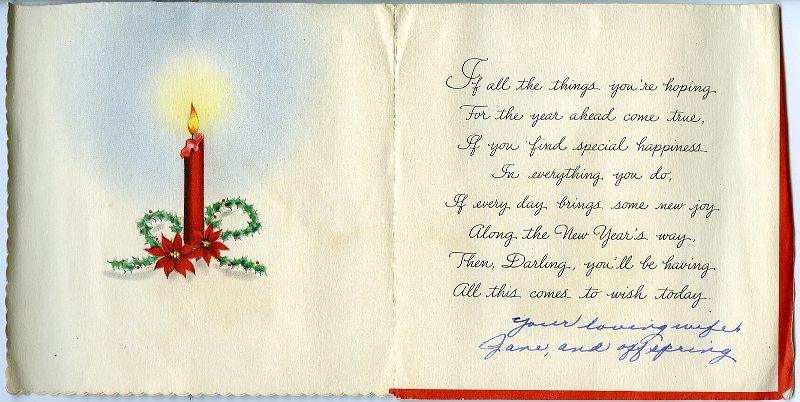 If all the things you're hoping
For the year ahead come true,
If you find special happiness
In everything you do,
If every day brings some new joy
Along the New Year's way,
Then, Darling, you'll be having
All this comes to wish today.
Your loving wife,
Jane, and offspring